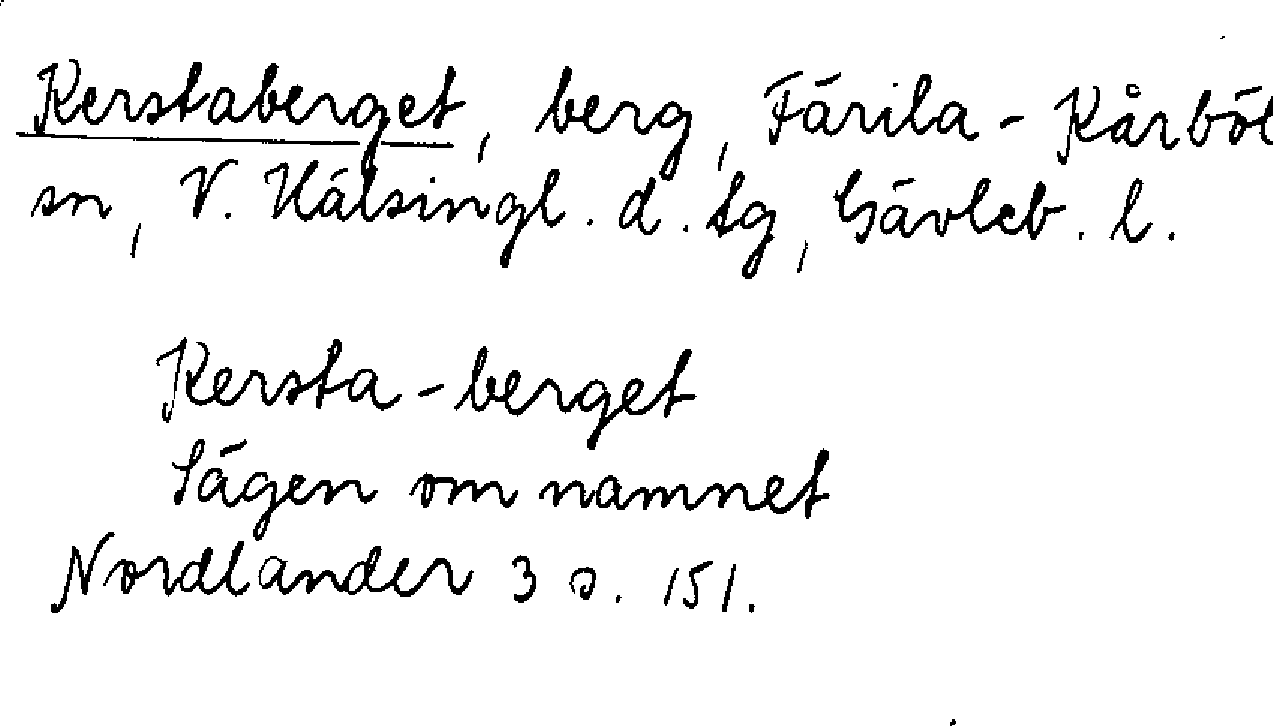 Kerstaberget, berg, Färila-Kårböl
sn, V. Hälsingl. d. tg, Gävleb. l.
Kersta-berget
Sägen om namnet
Nordlander 3 s. 151.